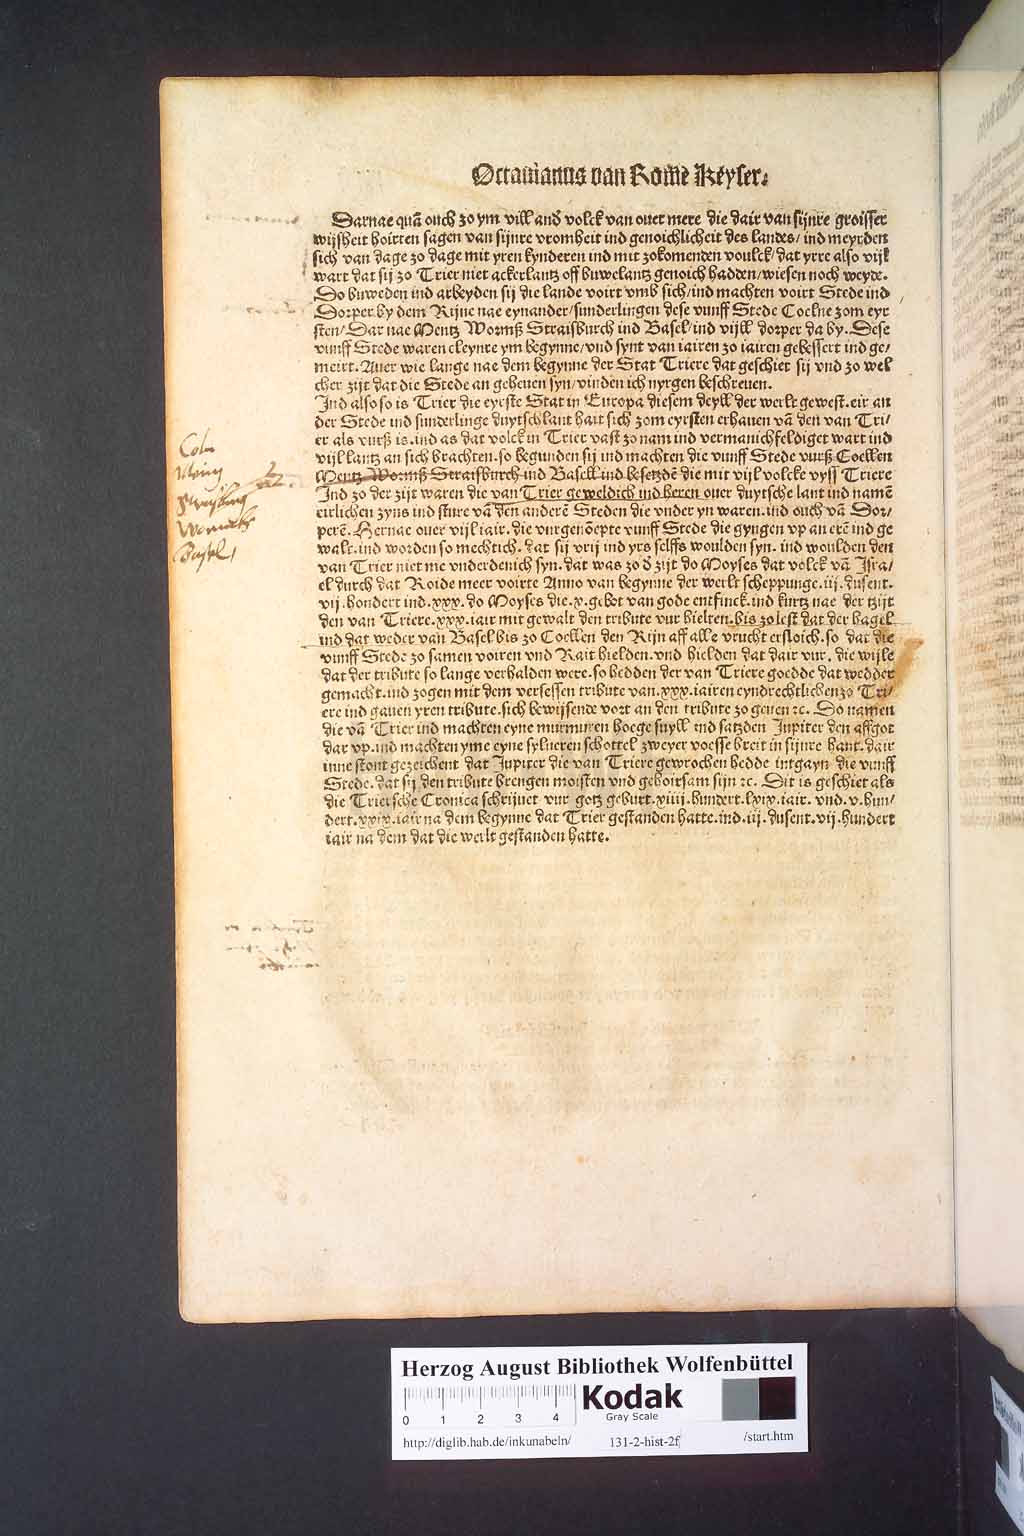 Octauianus van Rome Keyser.
Darnae quã ouch zo ym vill and volck van ouer mere die dair van sijnre groisser
wijsheit hoirten sagen van sijnre vromheit ind genoichlicheit des landes/ ind meyrden
sich van dage zo dage mit yren kynderen ind mit zokomenden voulck/ dat yrre also vijl
wart dat sij zo Trier niet ackerlantz off buwelantz genoich hadden/ wiesen noch weyde.
Do buweden ind arbeyden sij die lande voirt vmb sich/ ind machten voirt Stede ind
Dorper by dem Rijne nae eynander/ sunderlingen dese vunff Stede Coelne zom eyr
sten/ Dar nae Mentz Wormß Straisburch ind Basel/ ind vijll dorper da by. Dese
vunff Stede waren cleynre ym begynne/ vnd synt van iairen zo iairen gebessert ind ge/
meirt. Auer wie lange nae dem begynne der Stat Triere dat geschiet sij vnd zo wel
cher zijt dat die Stede an geheuen syn/ vinden ich nyrgen beschreuen.
Ind also so is Trier die eyrste Stat in Europa diesem deyll der werlt gewest. eir an
der Stede ind sunderlinge duytschlant hait sich zom eyrsten erhauen vã den van Tri/
er als vurß is. ind as dat volck in Trier vast zo nam ind vermanichfeldiget wart ind
vijl lantz an sich brachten. so begunden sij ind machten die vunff Stede vurß Coellen
Mentz Wormß Straisburch ind Basell ind besetzdẽ die mit vijl volcke vyss Triere
Ind zo der zijt waren die van Trier geweldich ind heren ouer duytsche lant ind namẽ
eirlichen zyns ind sture vã den anderẽ Steden die vnder yn waren. ind ouch vã Dor/
perẽ. Hernae ouer vijl iair. die vurgenõepte vunff Stede die gyngen vp an erẽ ind ge
walt. ind worden so mechtich. dat sij vrij ind yrs selffs woulden syn. ind woulden den
van Trier niet me vnderdenich syn. dat was zo d zijt do Moyses dat volck vã Jsra/
el durch dat Roide meer voirte Anno van begynne der werlt scheppunge. iij. dusent.
vij. hondert ind. xxx. do Moyses die. x. gebot van gode entfinck. ind kurtz nae der tzijt
den van Triere. xxx. iair mit gewalt den tribute vur hielten. bis zo lest dat der hagel
ind dat weder van Basel bis zo Coellen den Rijn aff alle vrucht ersloich. so dat die
vunff Stede zo samen voiren vnd Rait hielden. vnd hielden dat dair vur. die wijle
dat der tribute so lange verhalden were. so hedden der van Triere goedde dat wedder
gemacht. ind zogen mit dem versessen tribute van. xxx. iairen eyndrechtlichen zo Tri/
ere ind gauen yren tribute. sich bewijsende vort an den tribute zo geuen ꝛc. Do namen
die vã Trier ind machten eyne murmuren hoege suyll ind satzden Jupiter den affgot
dar vp. ind machten yme eyne sylueren schottel zweyer voesse breit in sijnre hant. dair
inne stont gezeichent dat Jupiter die van Triere gewrochen hedde intgayn die vunff
Stede. dat sij den tribute brengen moisten vnd gehoirsam sijn ꝛc. Dit is geschiet als
die Triersche Cronica schrijuet vur gotz geburt. xiiij. hundert. lxix. iair. vnd. v. hun/
dert. xxix. iair na dem begynne dat Trier gestanden hatte. ind. iij. dusent. vij. hundert
iair na dem dat die werlt gestanden hatte.
Coln
Basel
Herzog August Bibliothek Wolfenbüttel
0 1 2 3 4
Kodak
Gray Scale
http://diglib.hab.de/inkunabeln/ 131-2-hist-2f /start.htm